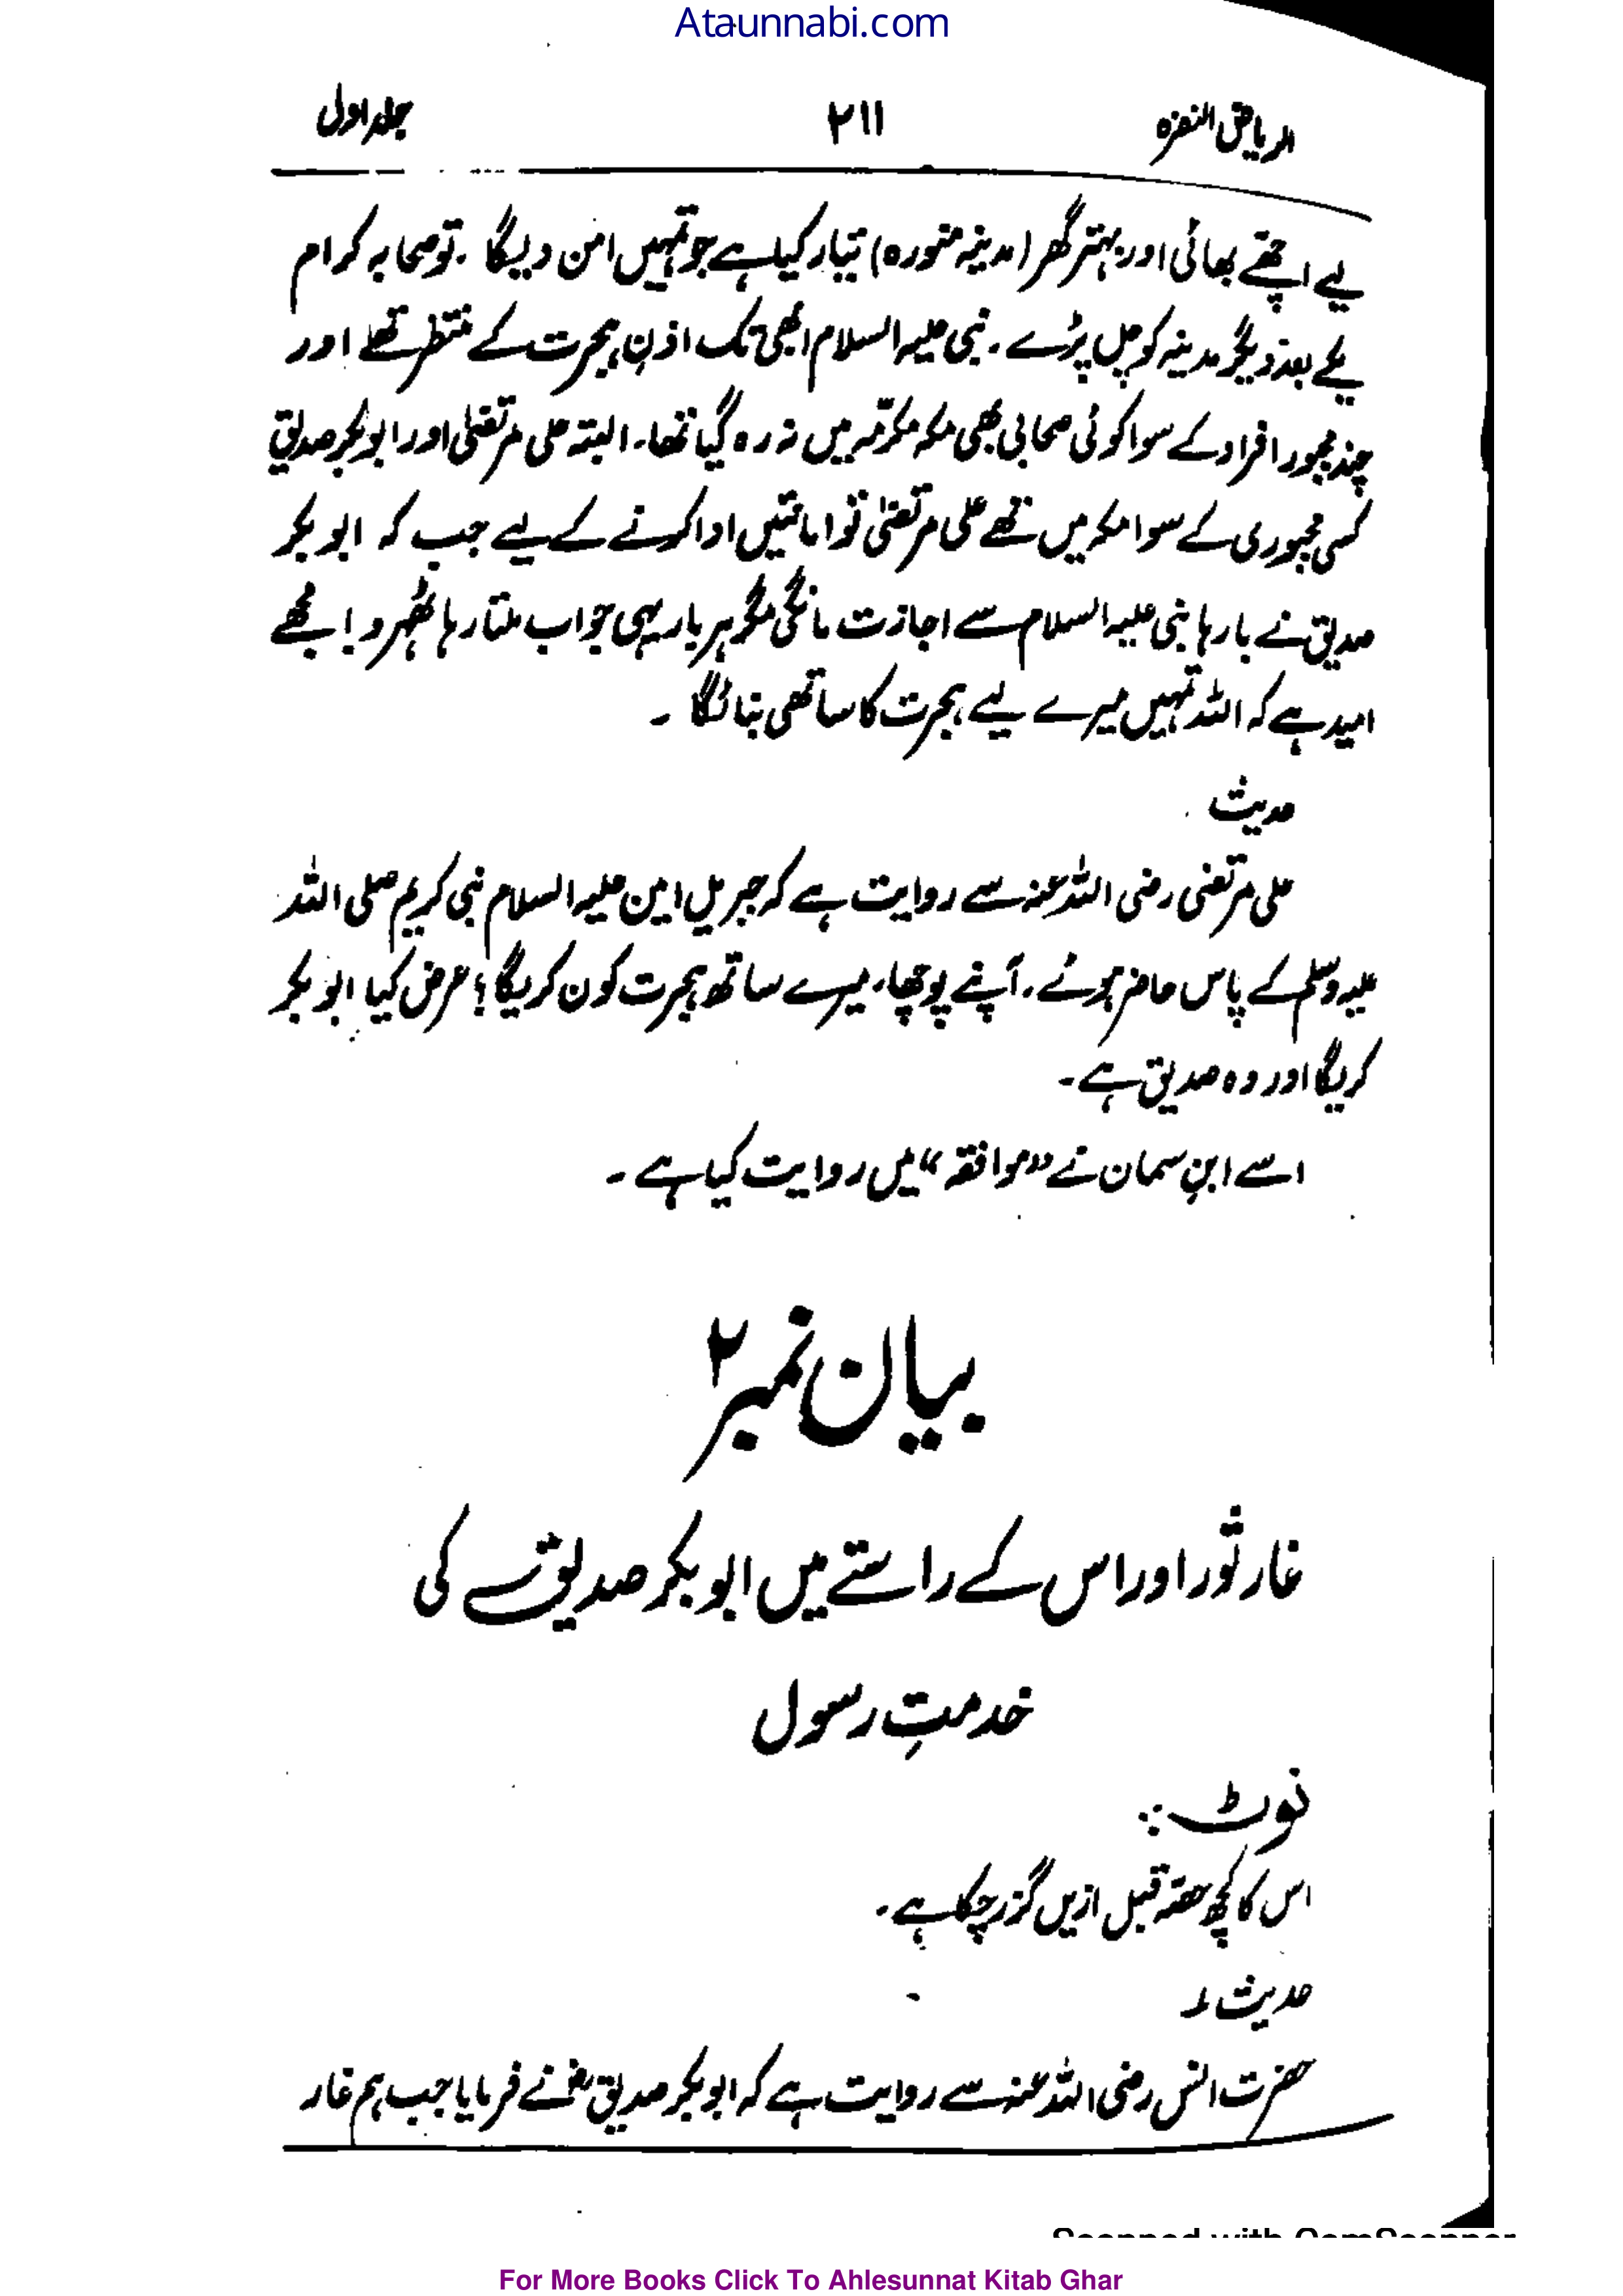 Ataunnabi.com
الریاض النضرہ ۲۱۱ جلد اول
لیے اچھے بھائی اور بہتر گھر (مدینہ منورہ) تیار کیا ہے جو تمہیں امن دیگا۔ تو صحابہ کرام
یکے بعد دیگر مدینہ کو چل پڑے۔ نبی علیہ السلام ابھی تک اذنِ ہجرت کے منتظر تھے اور
چند مجبور افراد کے سوا کوئی صحابی بھی مکہ مکرمہ میں نہ رہ گیا تھا۔ البتہ علی مرتضیٰ اور ابوبکر صدیق
کسی مجبوری کے سوا مکہ میں تھے علی مرتضیٰ تو امانتیں ادا کرنے کے لیے جب کہ ابوبکر
صدیق نے بارہا نبی علیہ السلام سے اجازت مانگی مگر ہر بار یہی جواب ملتا رہا ٹھہرو! مجھے
امید ہے کہ اللہ تمہیں میرے لیے ہجرت کا ساتھی بنائگا۔
حدیث
علی مرتضی رضی اللہ عنہ سے روایت ہے کہ جبریل امین علیہ السلام نبی کریم صلی اللہ
علیہ وسلم کے پاس حاضر ہوئے۔ آپنے پوچھا، میرے ساتھ ہجرت کون کریگا؟ عرض کیا ابوبکر
کریگا اور وہ صدیق ہے۔
اسے ابنِ سمان نے ”موافقہ“ میں روایت کیا ہے۔
بیان نمبر ۲
غار ثور اور اس کے راستے میں ابوبکر صدیقؓ کی
خدمتِ رسول
نوٹ:
اس کا کچھ حصہ قبل ازیں گزر چکا ہے۔
حدیث ۱
حضرت انس رضی اللہ عنہ سے روایت ہے کہ ابوبکر صدیقؓ نے فرمایا جب ہم غار
Scanned with CamScanner
For More Books Click To Ahlesunnat Kitab Ghar